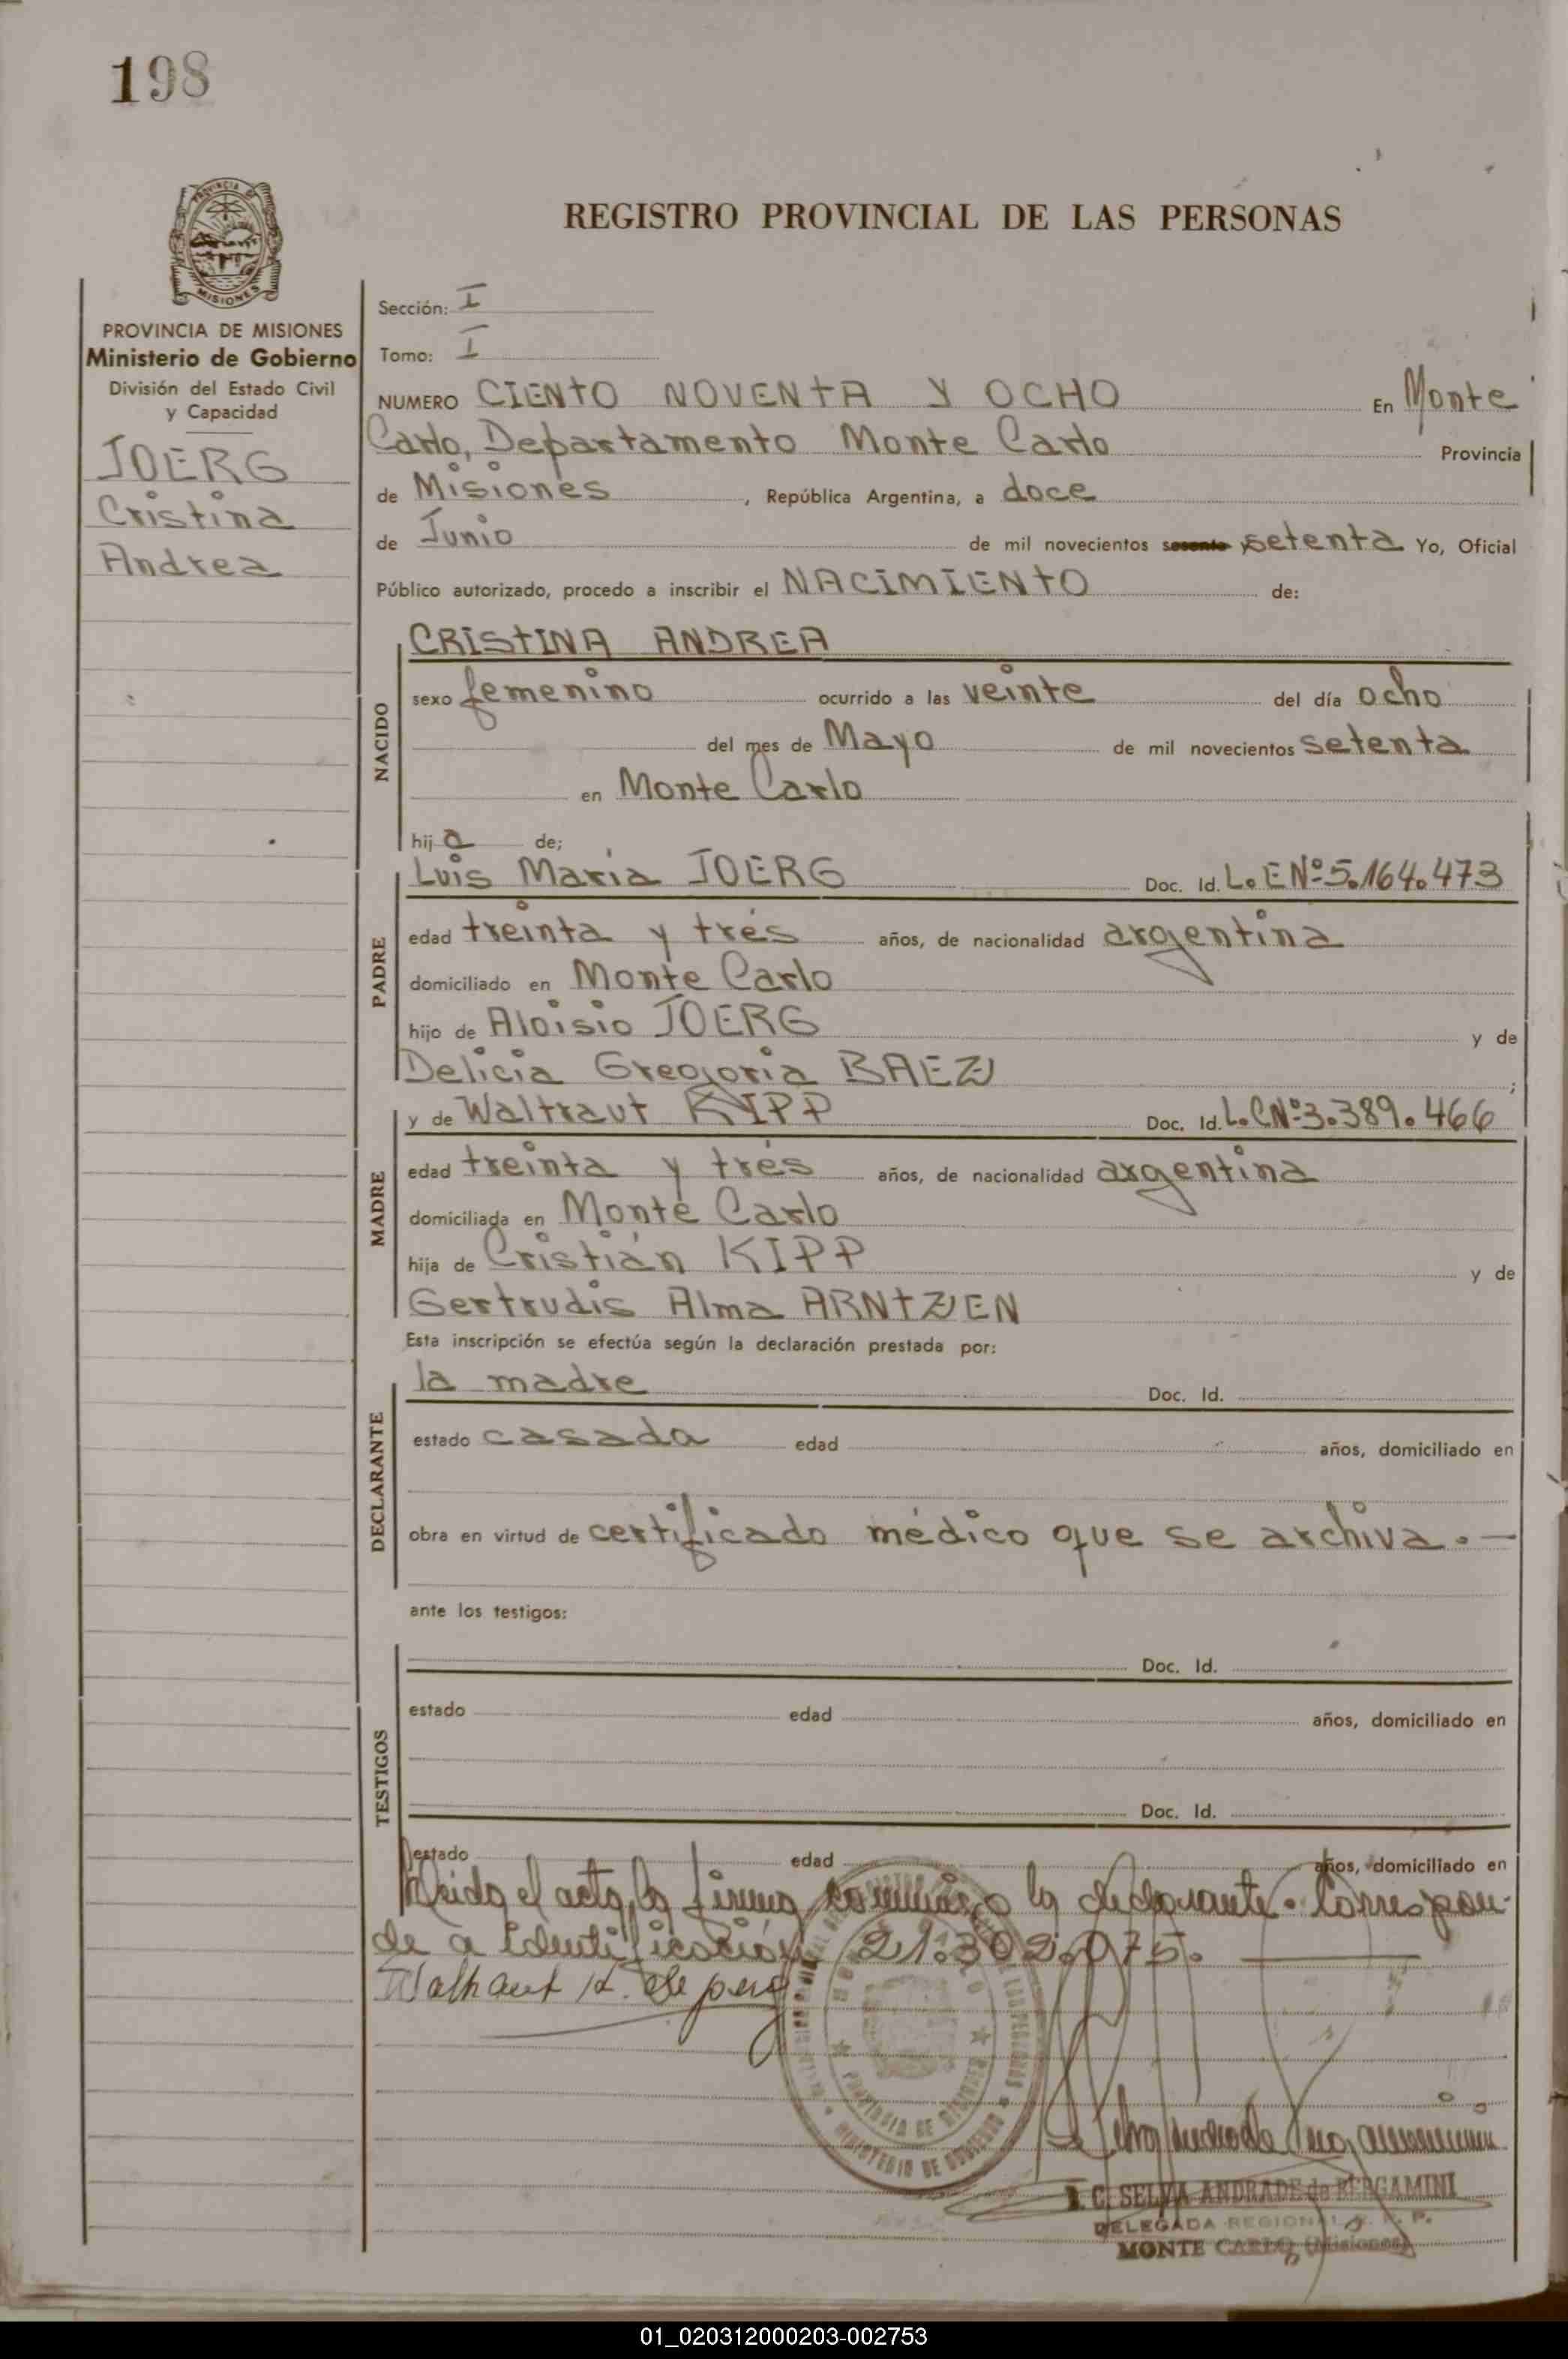 198
REGISTRO PROVINCIAL DE LAS PERSONAS
PROVINCIA DE MISIONES
Ministerio de Gobierno
División del Estado Civil
y Capacidad
JOERG
Cristina
Andrea
Sección: I
Tomo: I
NUMERO CIENTO NOVENTA Y OCHO En Monte
Carlo, Departamento Monte Carlo Provincia
de Misiones, República Argentina, a doce
de Junio de mil novecientos setenta Yo, Oficial
Público autorizado, procedo a inscribir el NACIMIENTO de:
NACIDO
CRISTINA ANDREA
sexo femenino ocurrido a las veinte del día ocho
del mes de Mayo de mil novecientos setenta
en Monte Carlo
hija de;
PADRE
Luis María JOERG Doc. Id. L.E Nº 5.164.473
edad treinta y tres años, de nacionalidad argentina
domiciliado en Monte Carlo
hijo de Aloisio JOERG y de
Delicia Gregoria BAEZ ;
MADRE
y de Waltraut KIPP Doc. Id. L.C Nº 3.389.466
edad treinta y trés años, de nacionalidad argentina
domiciliada en Monte Carlo
hija de Cristián KIPP y de
Gertrudis Alma ARNTZEN
Esta inscripción se efectúa según la declaración prestada por:
DECLARANTE
la madre Doc. Id.
estado casada edad años, domiciliado en
obra en virtud de certificado médico que se archiva.-
ante los testigos:
TESTIGOS
Doc. Id.
estado edad años, domiciliado en
Doc. Id.
estado edad años, domiciliado en
Leída el acta, la firma conmigo la declarante. Correspon-
de a Identificación 21.302.075.
PROVINCIA DE MISIONES
MINISTERIO DE GOBIERNO
C. SELVA ANDRADE de BERGAMINI
DELEGADA REGIONAL R. P. P.
MONTE CARLO (Misiones)
01_020312000203-002753